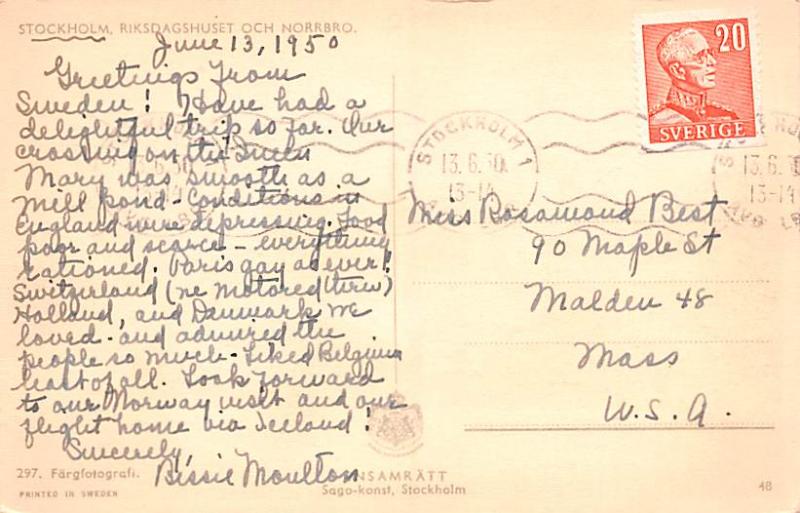 STOCKHOLM, RIKSDAGSHUSET OCH NORRBRO.
June 13, 1950
Greetings from
Sweden! Have had a
delightful trip so far. Our
crossing on the Queen
Mary was smooth as a
mill pond - Conditions in
England were depressing. Food
poor and scarce - everything
rationed. Paris gay as ever!
Switzerland (we motored thru)
Holland, and Danmark we
loved - and admired the
people so much - Liked Belgium
least of all. Look forward
to our Norway visit and our
flight home via Iceland!
Sincerely,
Bessie Moulton
297. Färgfotografi.
PRINTED IN SWEDEN
ENSAMRÄTT
Sago-konst, Stockholm
48
20
SVERIGE
STOCKHOLM 1
13.6.50
13-14
13.6.
13-14
Miss Rosamond Best
90 Maple St
Malden 48
Mass
U.S.A.